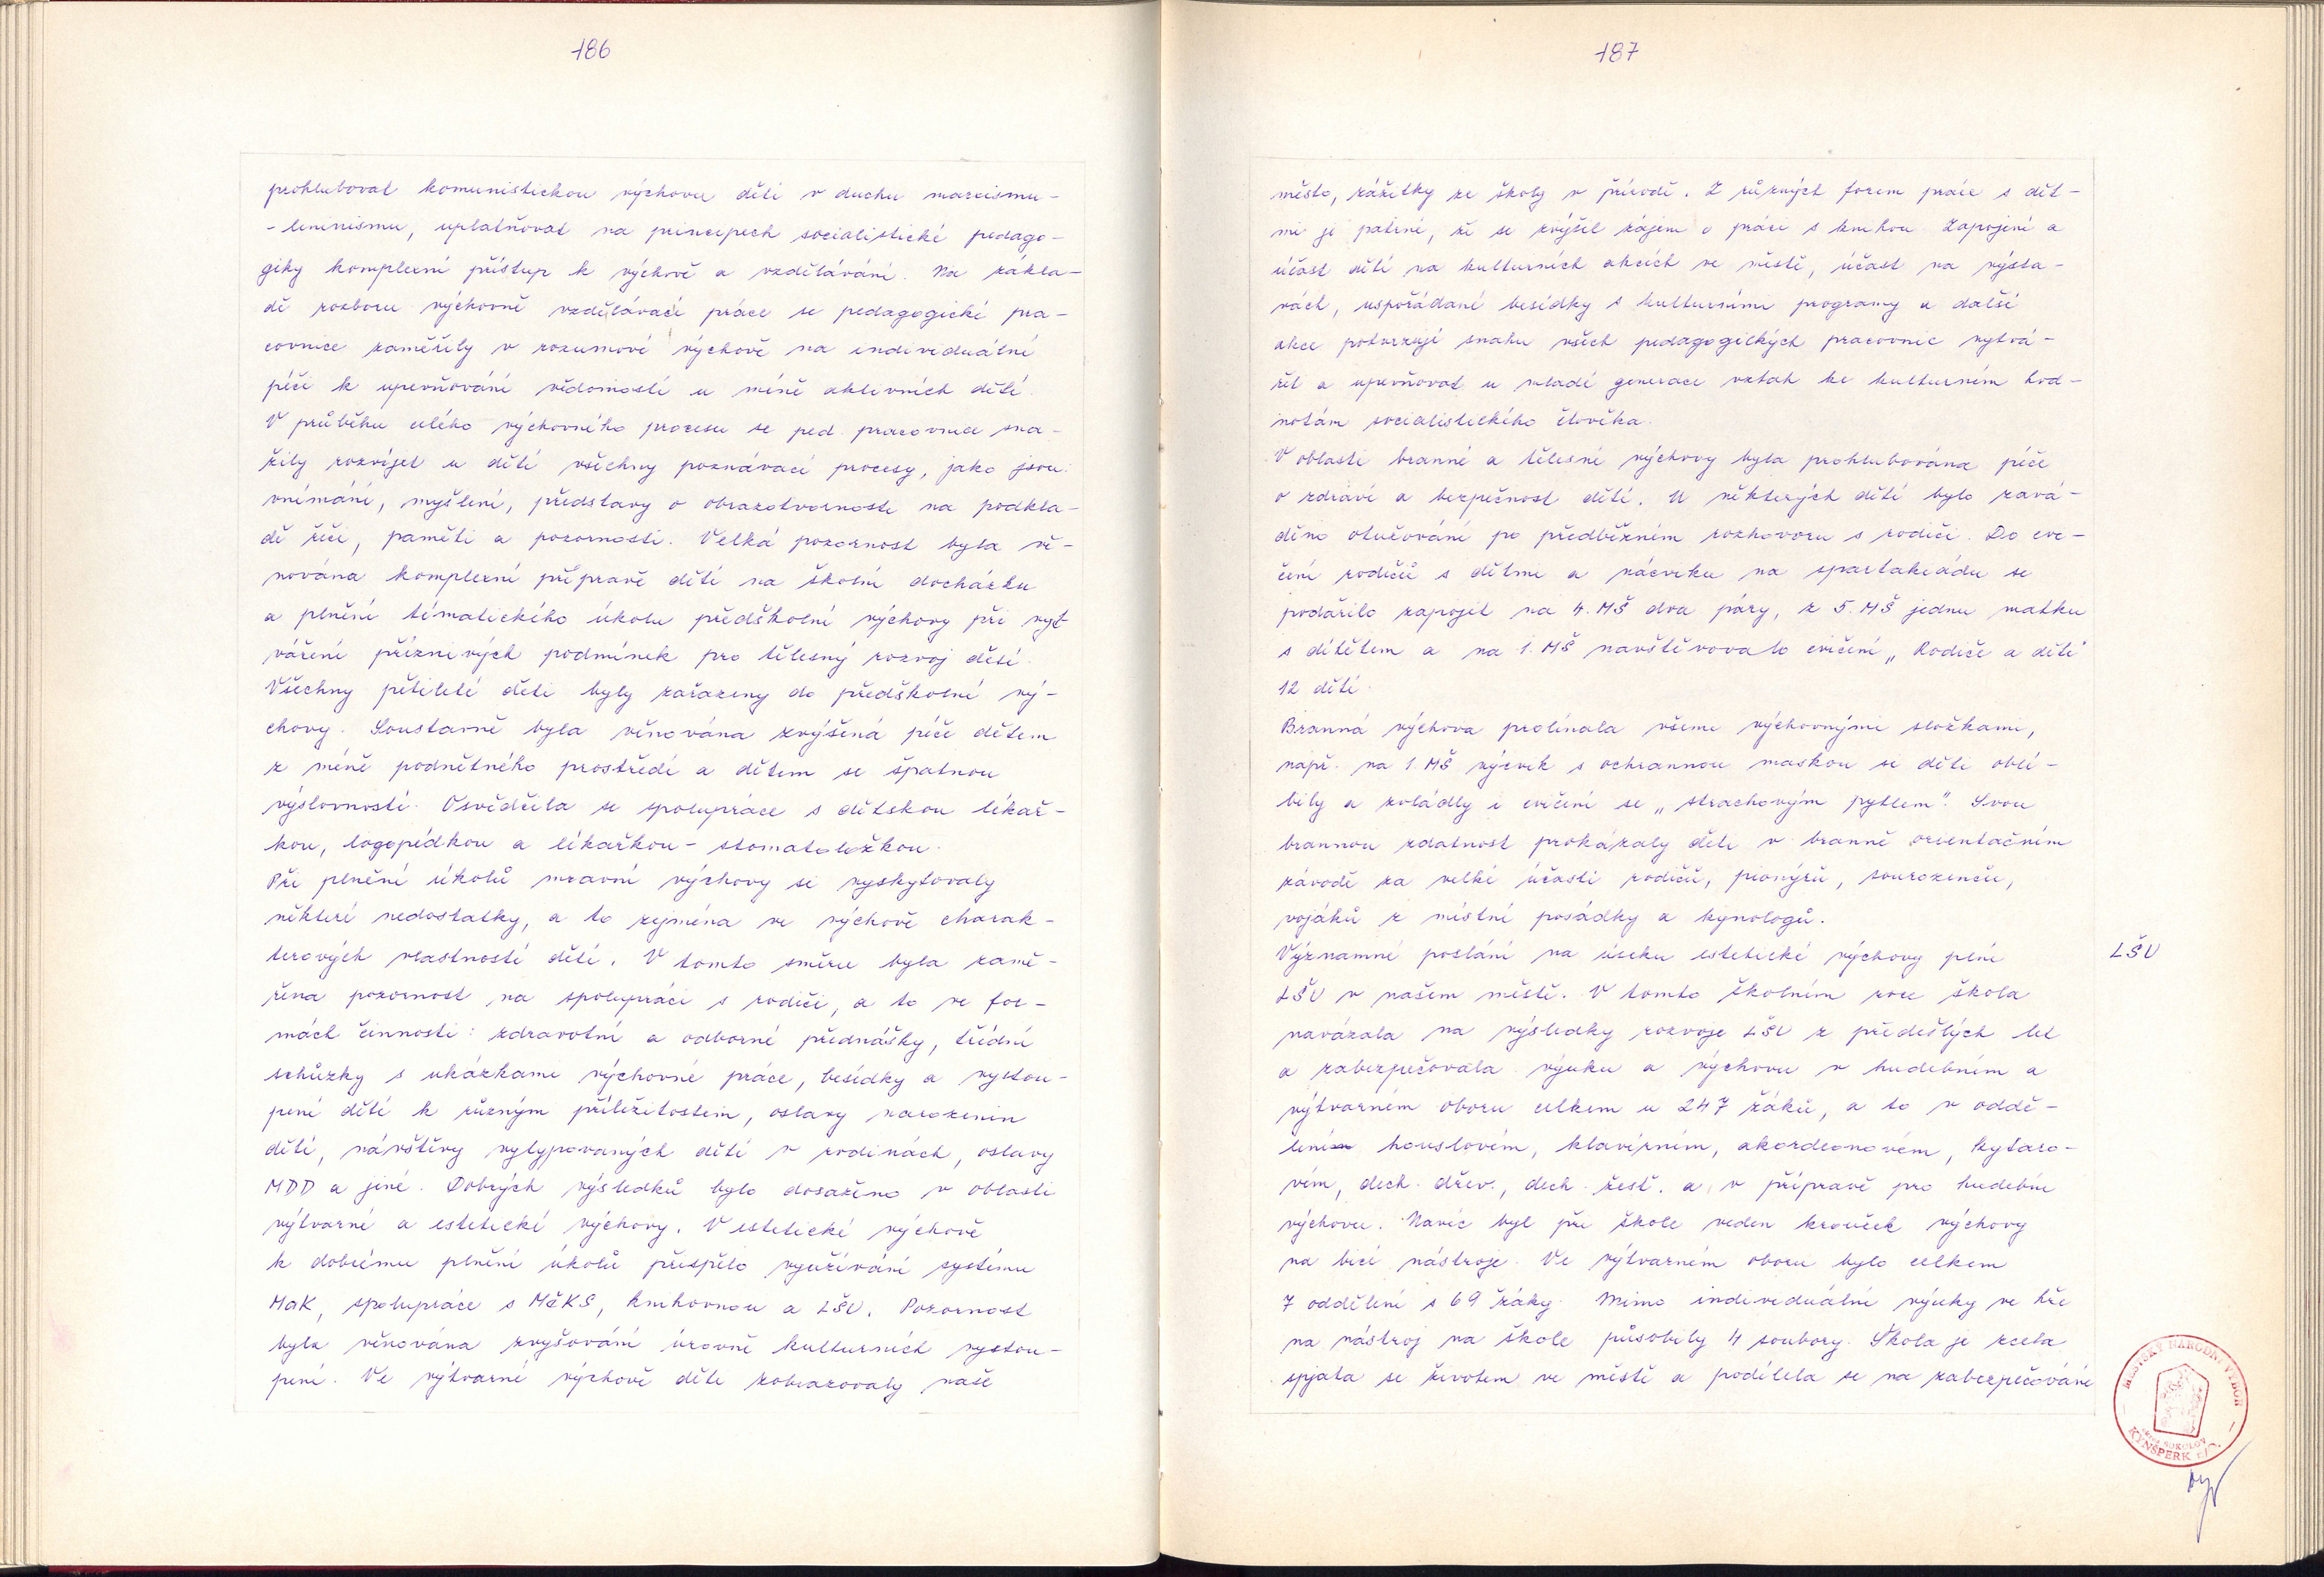 186
prohlubovat komunistickou výchovu dětí v duchu marxismu-
-leninismu, uplatňovat na principech socialistické pedago-
giky komplexní přístup k výchově a vzdělávání. Na zákla-
dě rozboru výchovně vzdělávací práce se pedagogické pra-
covnice zaměřily v rozumové výchově na individuální
péči k upevňování vědomostí u méně aktivních dětí.
V průběhu celého výchovného procesu se ped. pracovnice sna-
žily rozvíjet u dětí všechny poznávací procesy, jako jsou:
vnímání, myšlení, představy o obrazotvornosti na podkla-
dě řeči, paměti a pozornosti. Velká pozornost byla vě-
nována komplexní přípravě dětí na školní docházku
a plnění tématického úkolu předškolní výchovy při vyt
váření příznivých podmínek pro tělesný rozvoj dětí.
Všechny pětileté děti byly zařazeny do předškolní vý-
chovy. Soustavně byla věnována zvýšená péče dětem
z méně podnětného prostředí a dětem se špatnou
výslovností. Osvědčila se spolupráce s dětskou lékař-
kou, logopedkou a lékařkou - stomatoložkou.
Při plnění úkolů mravní výchovy se vyskytovaly
některé nedostatky, a to zejména ve výchově charak-
terových vlastností dětí. V tomto směru byla zamě-
řena pozornost na spolupráci s rodiči, a to ve for-
mách činnosti: zdravotní a odborné přednášky, třídní
schůzky s ukázkami výchovné práce, besídky a vystou-
pení dětí k různým příležitostem, oslavy narozenin
dětí, návštěvy vytypovaných dětí v rodinách, oslavy
MDD a jiné. Dobrých výsledků bylo dosaženo v oblasti
výtvarné a estetické výchovy. V estetické výchově
k dobrému plnění úkolů přispělo využívání systému
MaK, spolupráce s MěKS, knihovnou a LŠU. Pozornost
byla věnována zvyšování úrovně kulturních vystou-
pení. Ve výtvarné výchově děti zobrazovaly naše
187
město, zážitky ze školy v přírodě. Z různých forem práce s dět-
mi je patrné, že se zvýšil zájem o práci s knihou. Zapojení a
účast dětí na kulturních akcích ve městě, účast na výsta-
vách, uspořádané besídky s kulturními programy a další
akce potvrzují snahu všech pedagogických pracovnic vytvá-
řet a upevňovat u mladé generace vztah ke kulturním hod-
notám socialistického člověka.
V oblasti branné a tělesné výchovy byla prohlubována péče
o zdraví a bezpečnost dětí. U některých dětí bylo zavá-
děno otužování po předběžném rozhovoru s rodiči. Do cvi-
čení rodičů s dětmi a nácviku na spartakiádu se
podařilo zapojit na 4. MŠ dva páry, z 5. MŠ jednu matku
s dítětem a na 1. MŠ navštěvovalo cvičení „Rodiče a děti"
12 dětí.
Branná výchova prolínala všemi výchovnými složkami,
např. na 1. MŠ výcvik s ochrannou maskou si děti oblí-
bily a zvládly i cvičení se „strachovým pytlem". Svou
brannou zdatnost prokázaly děti v branně orientačním
závodě za velké účasti rodičů, pionýrů, sourozenců,
vojáků z místní posádky a kynologů.
Významné poslání na úseku estetické výchovy plní
LŠU
LŠU v našem městě. V tomto školním roce škola
navázala na výsledky rozvoje LŠU z předešlých let
a zabezpečovala výuku a výchovu v hudebním a
výtvarném oboru celkem u 247 žáků, a to v oddě-
lení houslovém, klavírním, akordeonovém, kytaro-
vém, dech. dřev., dech. žesť. a v přípravě pro hudební
výchovu. Navíc byl při škole veden kroužek výchovy
na bicí nástroje. Ve výtvarném oboru bylo celkem
7 oddělení s 69 žáky. Mimo individuální výuky ve hře
na nástroj na škole působily 4 soubory. Škola je zcela
spjata se životem ve městě a podílela se na zabezpečování
MĚSTSKÝ NÁRODNÍ VÝBOR
okres SOKOLOV
KYNŠPERK n/O.